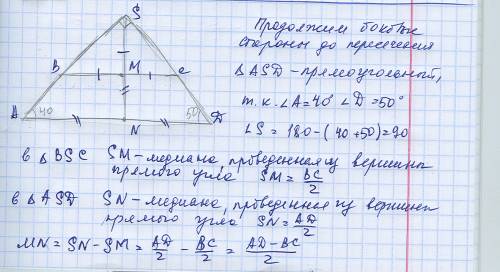 S
B M C
A 40 N 50 D
Продолжим боковые
стороны до пересечения
△ASD - прямоугольный,
т.к. ∠A=40° ∠D=50°
∠S = 180-(40+50)=90
в △BSC SM-медиана, проведенная из вершины
прямого угла SM = BC/2
в △ASD SN-медиана, проведенная из вершины
прямого угла SN = AD/2
MN = SN-SM = AD/2 - BC/2 = AD-BC/2